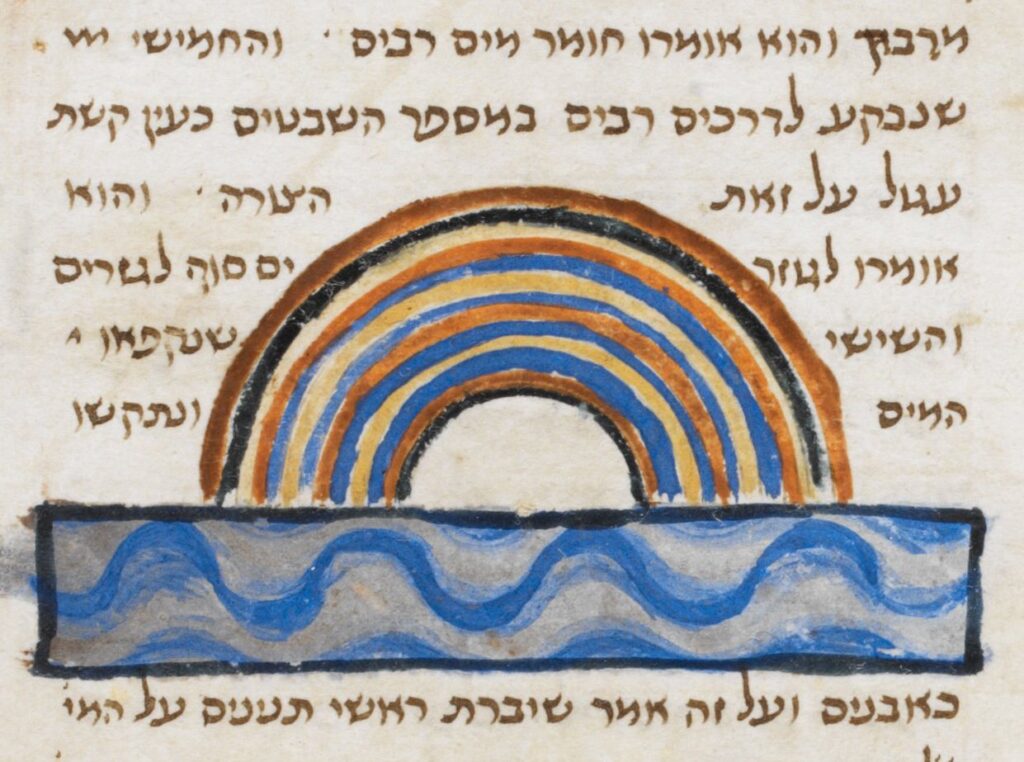 והוא אומרו חומר מים רבים · והחמישי
שנבקע לדרכים רבים במספר השבטים כעין קשת
עגול על זאת הצורה · והוא
אומרו לגוזר ים סוף לגזרים
והשישי שנקפאו
המים ונתקשו
כאבנים ועל זה אמר שיברת ראשי תנינים על המי'